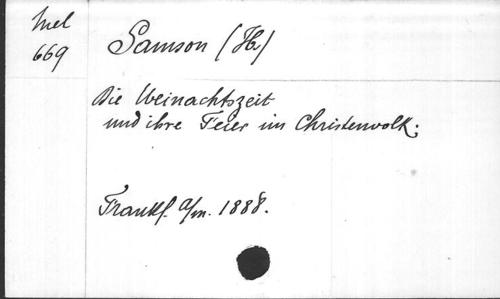 Mel
669
Samson (H.)
Die Weinachtszeit
und ihre Feier im Christenvolk;
Frankf. a/m. 1888.